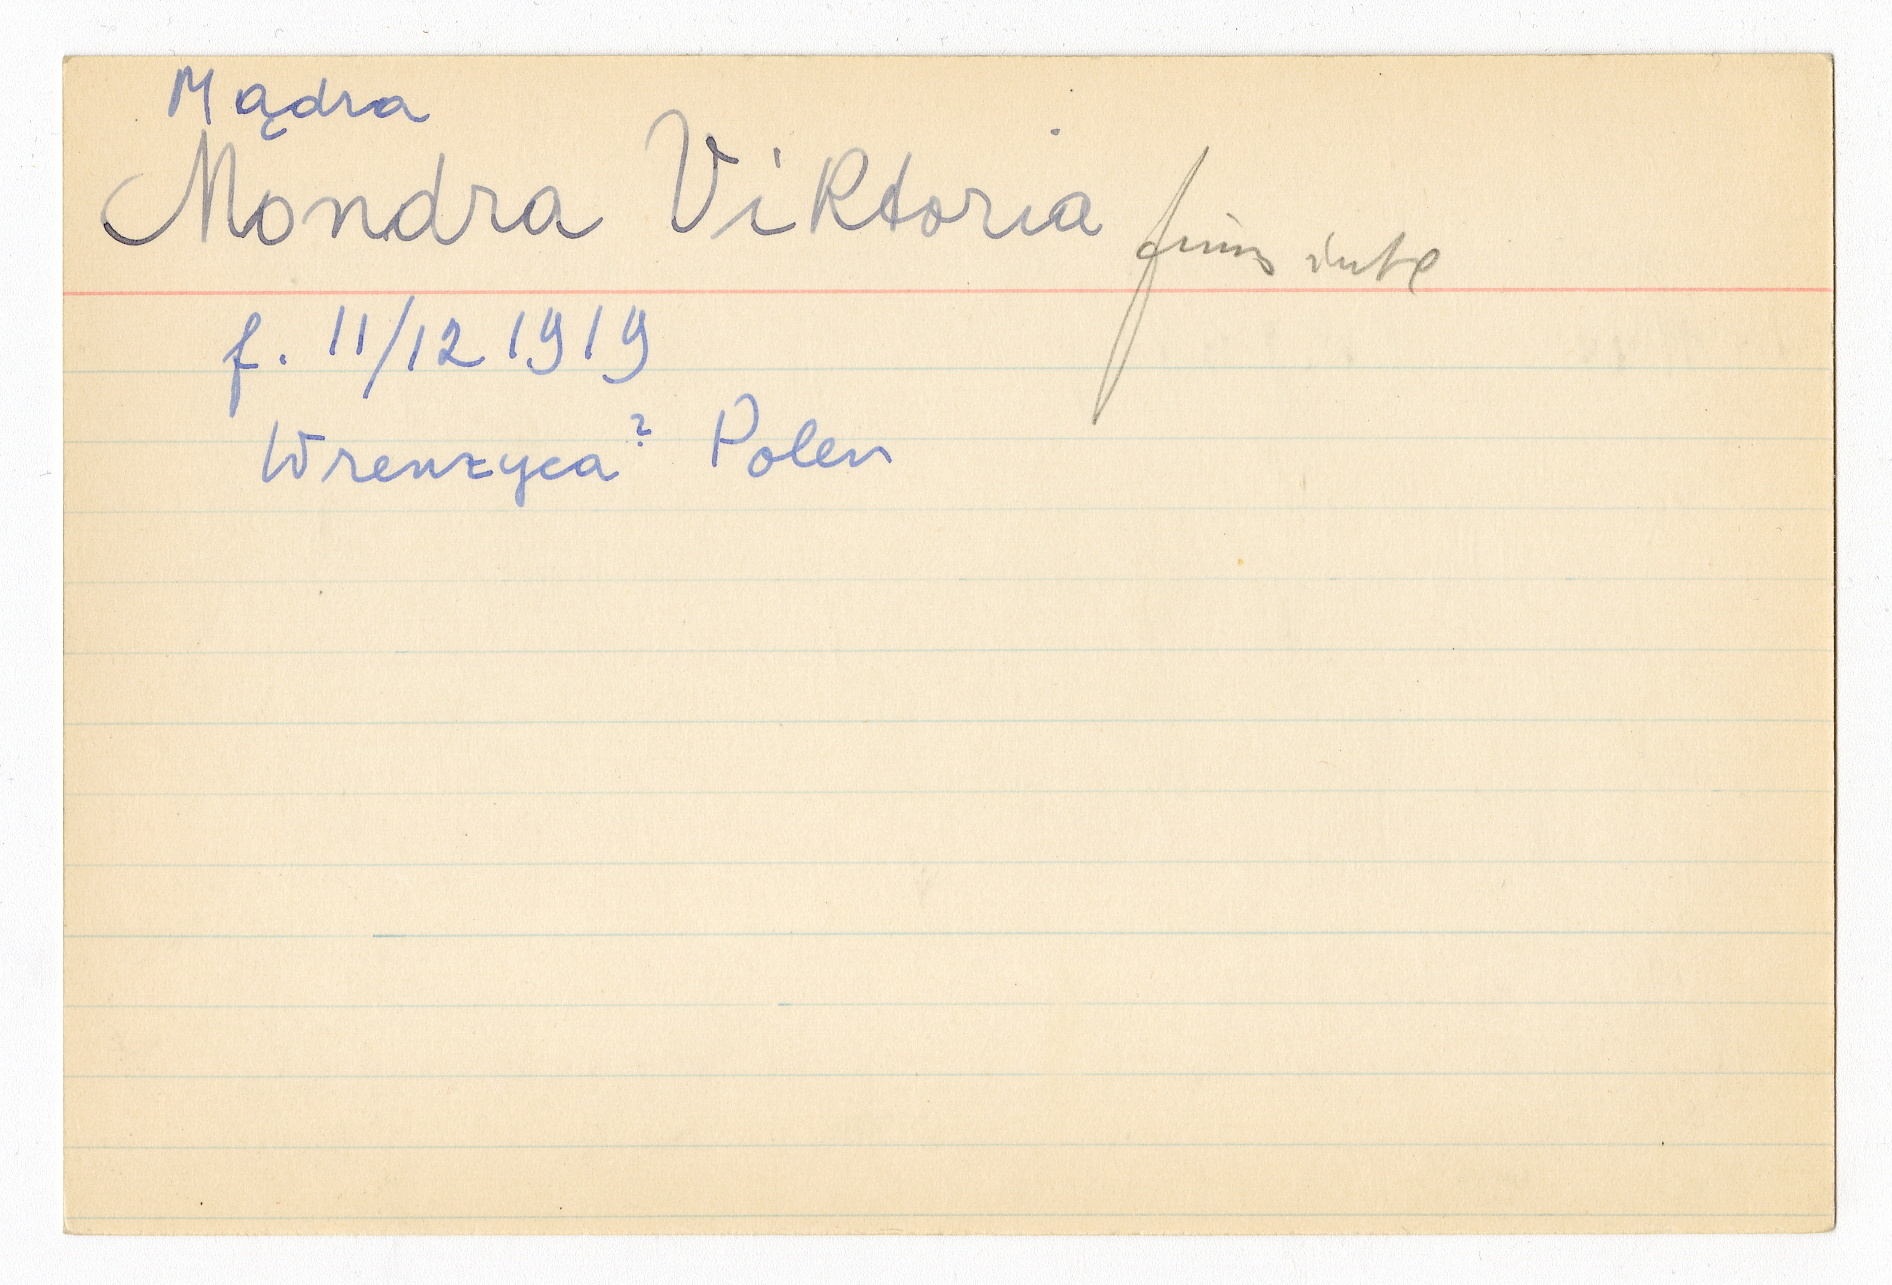 Mądra
Mondra Viktoria finns inte
f. 11/12 1919
Wrenzyca? Polen